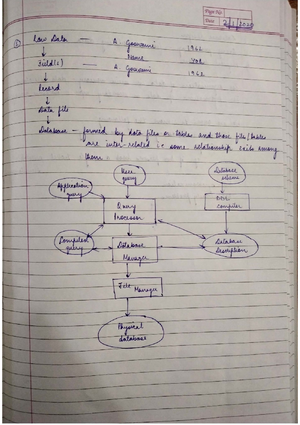 Page No.
Date 2/1/2020
①
Raw Data — A. Goswami 1962
Name YOB
Field(s) — A. Goswami 1962
Record
Data file
Database - formed by data files or tables and these files/tables
are inter-related i.e some relationship exits among
them.
User query
Database scheme
Application query
Query Processor
DDL compiler
Compiled query
Database Manager
Database description
File Manager
Physical database